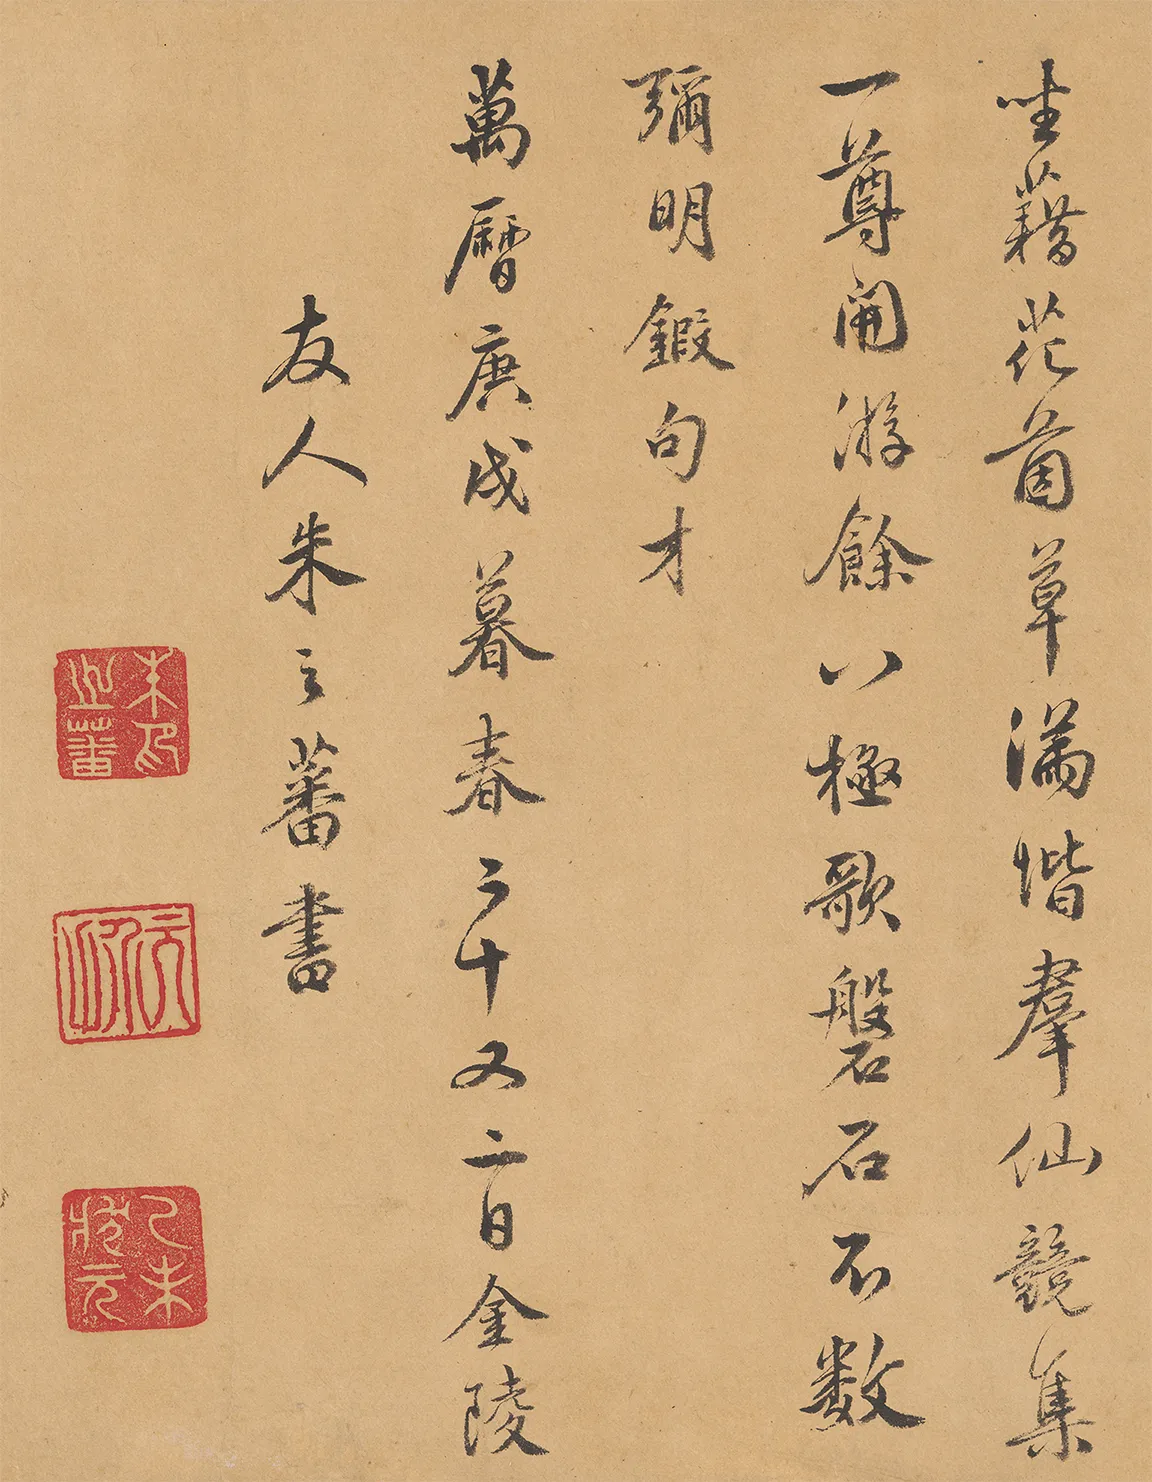 坐藉花茵草滿堦羣仙競集
一尊開游餘八極歌磐石石不数
彌明鍜句才
萬曆庚戌暮春二十又二日金陵
友人朱之蕃書
朱之蕃印
乙未狀元